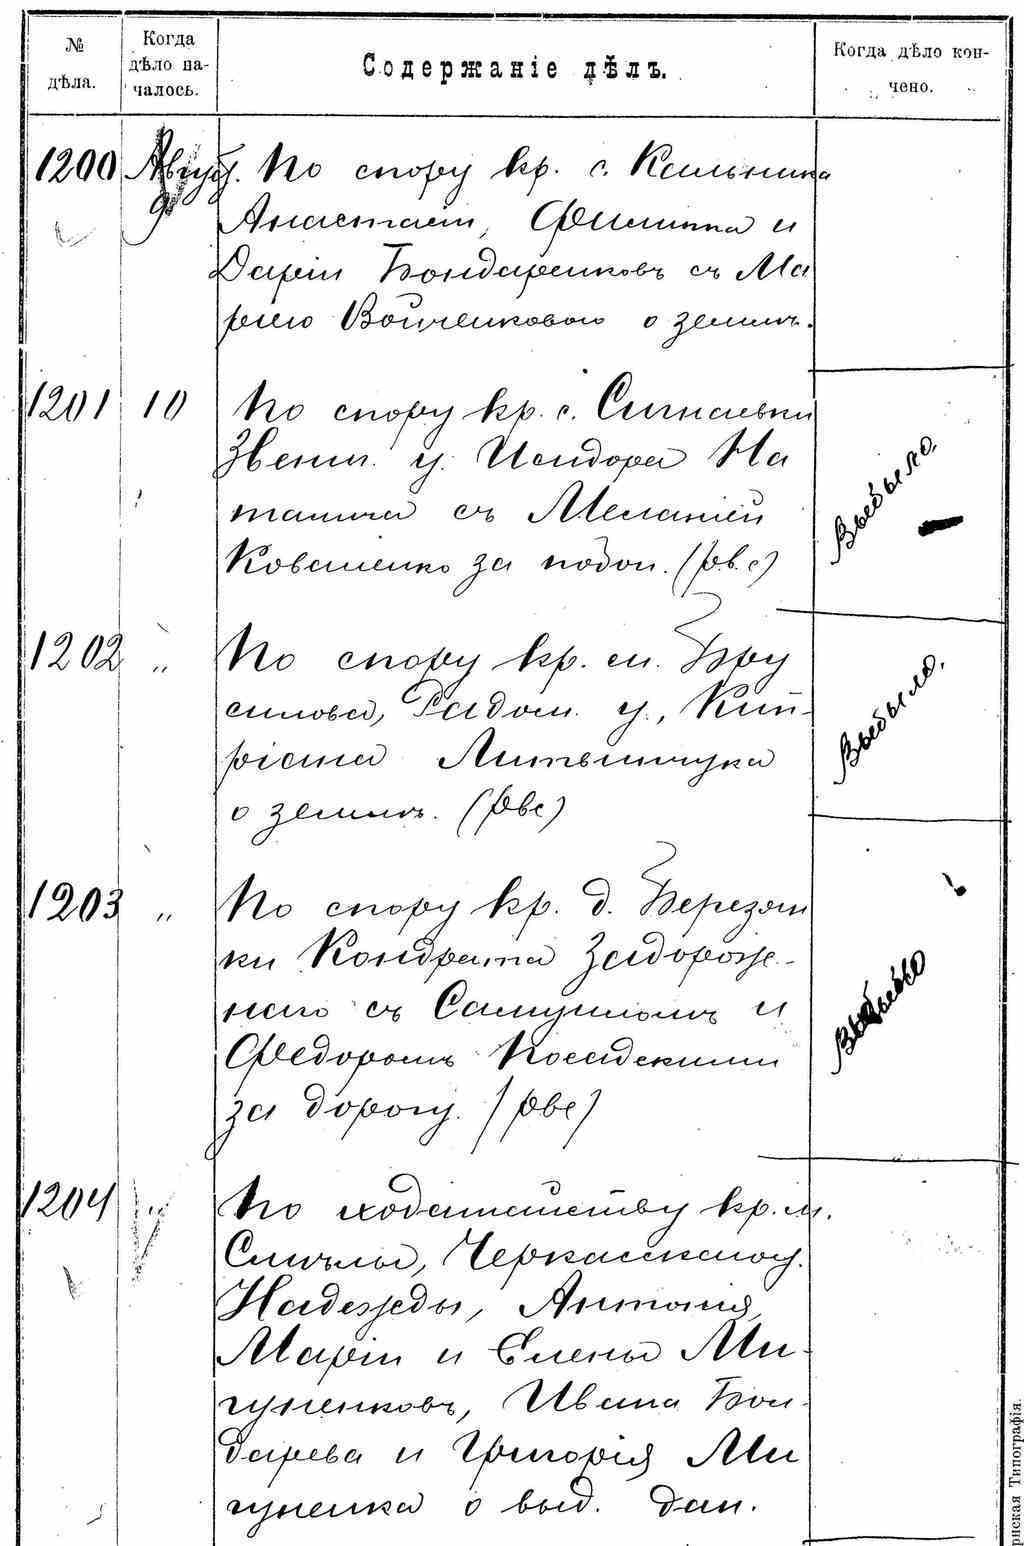 № дѣла.
Когда дѣло на-
чалось.
Содержаніе дѣлъ.
Когда дѣло кон-
чено.
1200 Август. По спору кр. с. Кальника
9 Анастасіи, Филиппа и
Даріи Бондаренковъ съ Ма
ріею Войченковою о землѣ.
1201 10 По спору кр. с. Сигнаевки
Звениг. у. Исидора На
талича съ Меланіей
Коваленко за подоп. (рвс)
Выбыло.
1202 „ По спору кр. м. Бру
силова, Радом. у., Кип-
ріана Литвинчука
о землѣ. (рвс)
Выбыло.
1203 „ По спору кр. д. Березян
ки Кондрата Задорож-
наго съ Самуиломъ и
Федоромъ Посадскими
за дорогу. (рвс)
Выбыло
1204 „ По ходатайству кр. м.
Смѣлы, Черкасскаго у.
Надежды, Антонія,
Маріи и Елены Ми-
гуненковъ, Ивана Бон-
дарева и Григорія Ми
гуненка о выд. дан.
рнская Типографія.